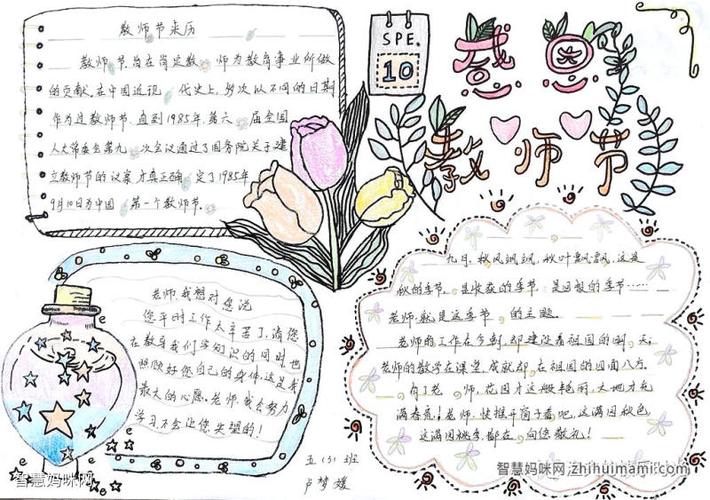 教师节来历
教师节,旨在肯定教师为教育事业所做
的贡献。在中国近现代史上,多次以不同的日期
作为过教师节。直到1985年,第六届全国
人大常委会第九次会议通过了国务院关于建
立教师节的议案,才真正确定了1985年
9月10日为中国第一个教师节。
SPE.
10
感恩
教师节
老师,我想对您说
您平时工作太辛苦了,请您
在教导我们学知识的同时也
照顾好您自己的身体,这是我
最大的心愿。老师,我会努力
学习不会让您失望的!
五(3)班
卢梦媛
九月,秋风飒飒,秋叶飘飘,这是
秋的季节,是收获的季节,是回报的季节……
老师就是这季节的主题。
老师的工作在今朝,却建设着祖国的明天;
老师的教学在课堂,成就却在祖国的四面八方。
有了老师,花园才这般艳丽,大地才充
满春意!老师,快推开窗子看吧,这满园秋色
这满园桃李,都在向您敬礼!
智慧妈咪网
智慧妈咪网 zhihuimami.com